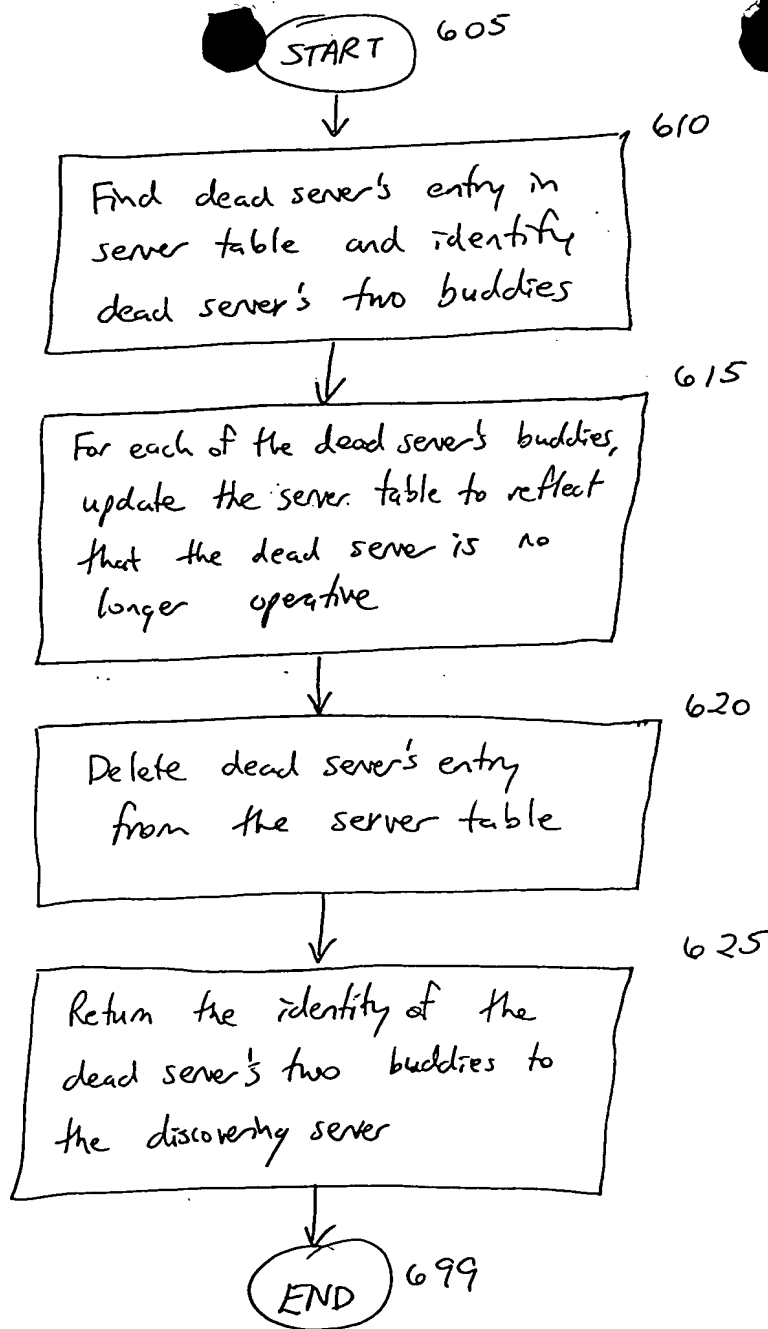 START 605
610
Find dead sever's entry in
server table and identify
dead server's two buddies
615
For each of the dead sever's buddies,
update the server table to reflect
that the dead server is no
longer operative
620
Delete dead sever's entry
from the server table
625
Return the identity of the
dead server's two buddies to
the discovering server
END 699